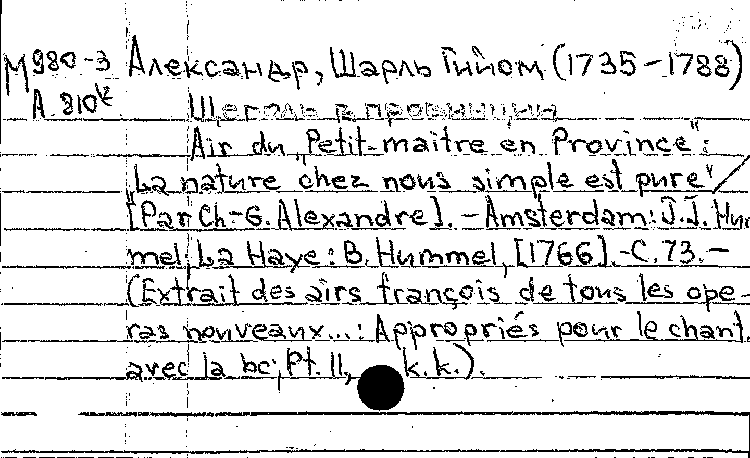 М980-3 Александр, Шарль Гийом (1735-1788)
А 810к Щеголь в провинции
Air du „Petit-maitre en Province":
„La nature chez nous simple est pure"/
[Par Ch-G. Alexandre]. - Amsterdam: J.J. Hum
mel; La Haye: B. Hummel, [1766].-C.73.-
(Extrait des airs françois de tous les ope-
ras nouveaux...: Appropriés pour le chant.
avec la bc; Pt. II, k.k.).